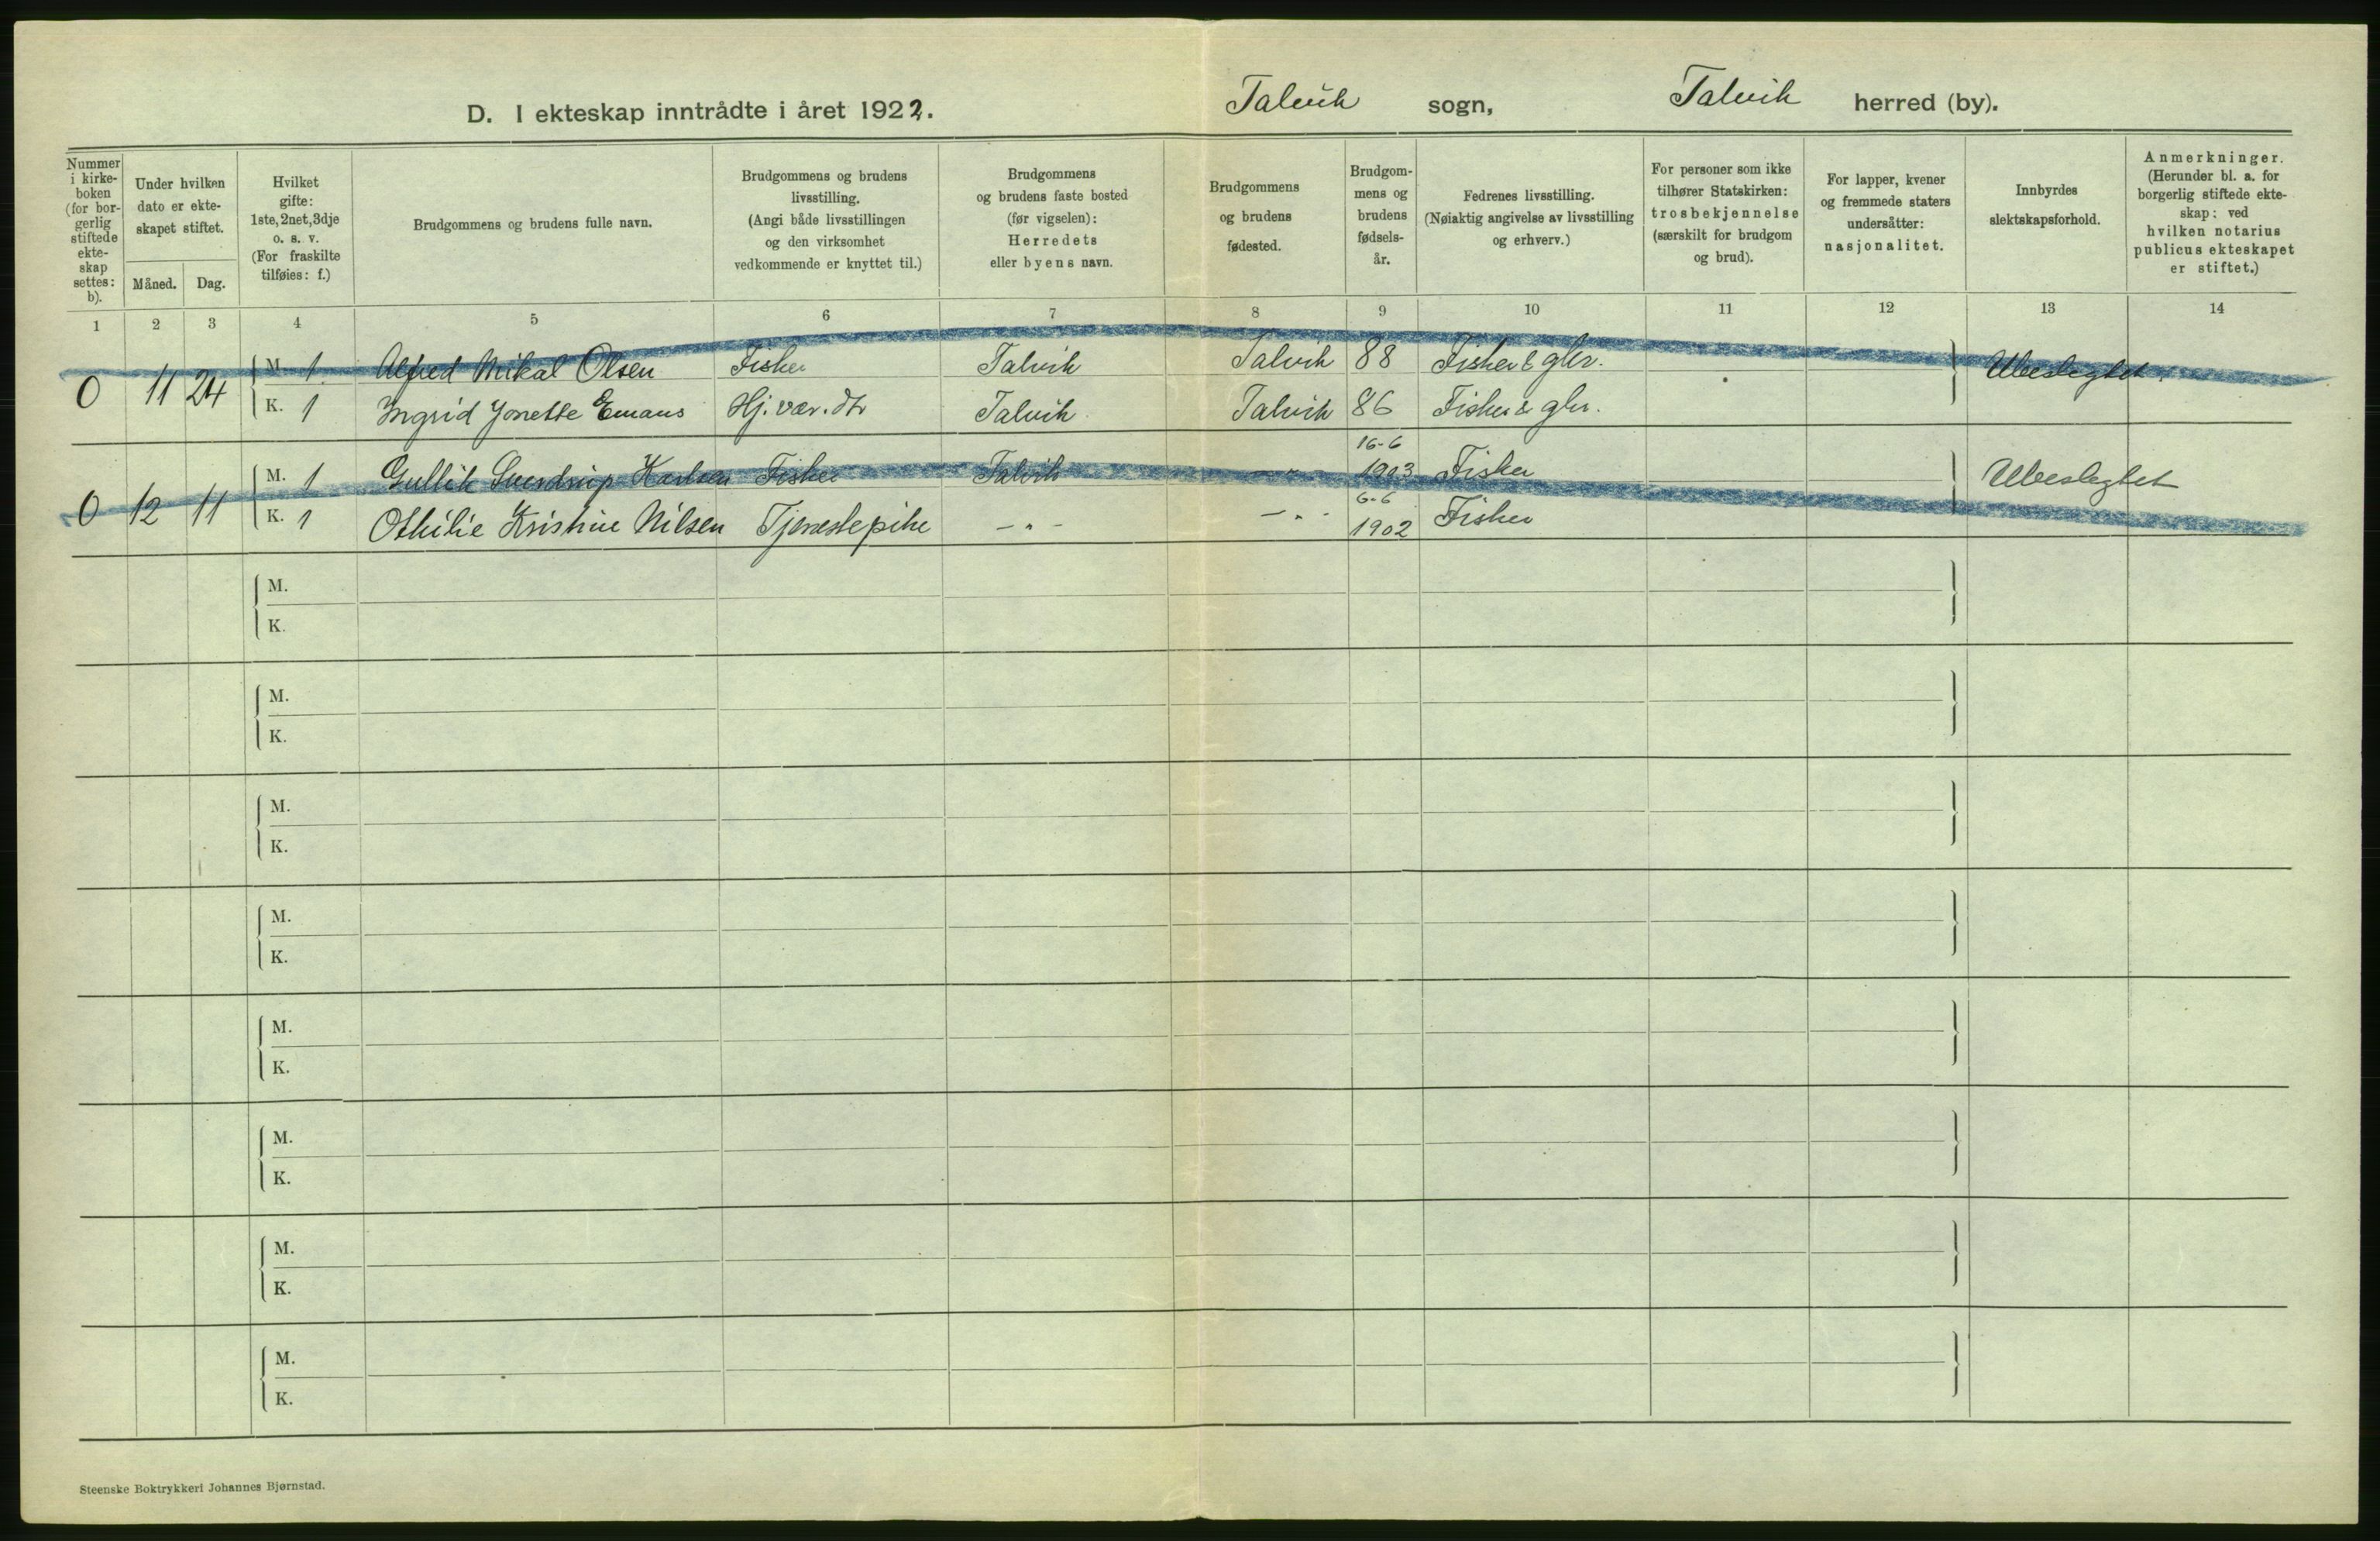 D. I ekteskap inntrådte i året 1922. Talvik sogn, Talvik herred (by).
Nummer i kirke-boken (for bor-gerlig stiftede ekte-skap settes: b).
Under hvilken dato er ekte-skapet stiftet.
Måned. Dag.
Hvilket gifte: 1ste, 2net, 3dje o. s. v. (For fraskilte tilføies: f.)
Brudgommens og brudens fulle navn.
Brudgommens og brudens livsstilling. (Angi både livsstillingen og den virksomhet vedkommende er knyttet til.)
Brudgommens og brudens faste bosted (før vigselen): Herredets eller byens navn.
Brudgommens og brudens fødested.
Brudgom-mens og brudens fødsels-år.
Fedrenes livsstilling. (Nøiaktig angivelse av livsstilling og erhverv.)
For personer som ikke tilhører Statskirken: trosbekjennelse (særskilt for brudgom og brud).
For lapper, kvener og fremmede staters undersåtter: nasjonalitet.
Innbyrdes slektskapsforhold.
Anmerkninger. (Herunder bl. a. for borgerlig stiftede ekte-skap: ved hvilken notarius publicus ekteskapet er stiftet.)
1 2 3 4 5 6 7 8 9 10 11 12 13 14
0 11 24 M. 1 Alfred Mikal Olsen Fisker Talvik Talvik 88 Fisker & gbr. Ubeslegtet.
K. 1 Ingrid Jonette Emaus Hj. vær. dtr Talvik Talvik 86 Fisker & gbr.
0 12 11 M. 1 Gullik Sverdrup Karlsen Fisker Talvik -"- 16-6 1903 Fisker Ubeslegtet
K. 1 Othilie Kristine Nilsen Tjenestepike -"- -"- 6-6 1902 Fisker
M.
K.
M.
K.
M.
K.
M.
K.
M.
K.
M.
K.
M.
K.
M.
K.
Steenske Boktrykkeri Johannes Bjørnstad.